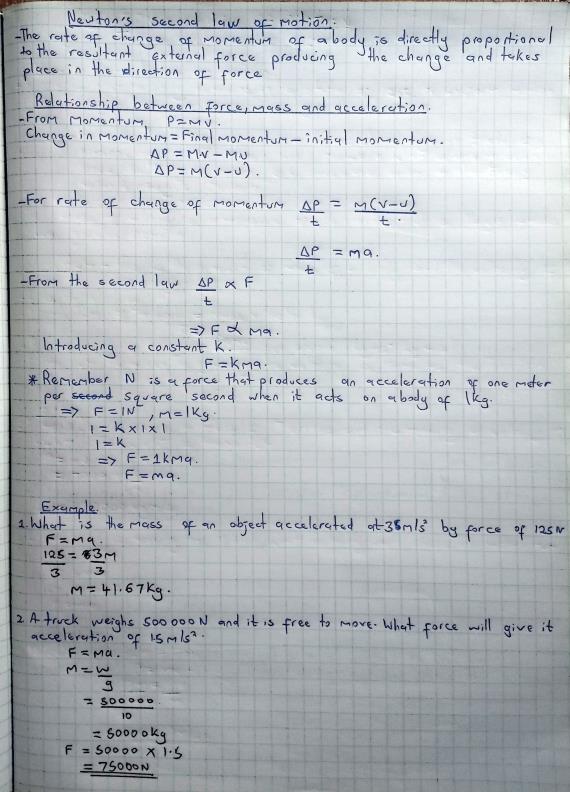 Newton's second law of motion.
-The rate of change of momentum of a body is directly proportional
to the resultant external force producing the change and takes
place in the direction of force
Relationship between force, mass and acceleration.
-From Momentum, P=mv.
Change in momentum = Final momentum - initial momentum.
ΔP = Mv - Mu
ΔP = M(v-u).
-For rate of change of momentum ΔP/t = M(v-u)/t.
ΔP/t = ma.
-From the second law ΔP/t ∝ F
=> F ∝ ma.
Introducing a constant K.
F = kma.
* Remember N is a force that produces an acceleration of one meter
per second square second when it acts on a body of 1kg.
=> F = 1N, M = 1Kg.
1 = K x 1 x 1
1 = K
=> F = 1kma.
F = ma.
Example.
1. What is the mass of an object accelerated at 3m/s² by force of 125N
F = Ma.
125/3 = 3M/3
M = 41.67Kg.
2. A truck weighs 500 000N and it is free to move. What force will give it
acceleration of 1.5m/s².
F = Ma.
M = W/g
= 500000/10
= 50000kg
F = 50000 x 1.5
= 75000N